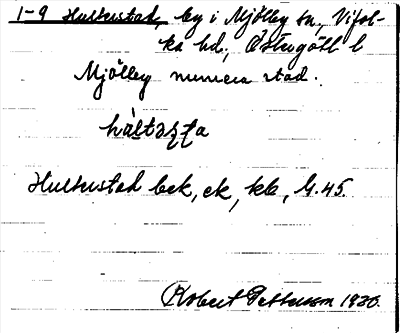 1-9 Hultustad, by i Mjölby sn, Vifol-
ka hd., Östergötl l
Mjölby numera stad.
hàltasta
Hultustad bek, ek, kk, G. 45.
Robert Pettersson 1930.